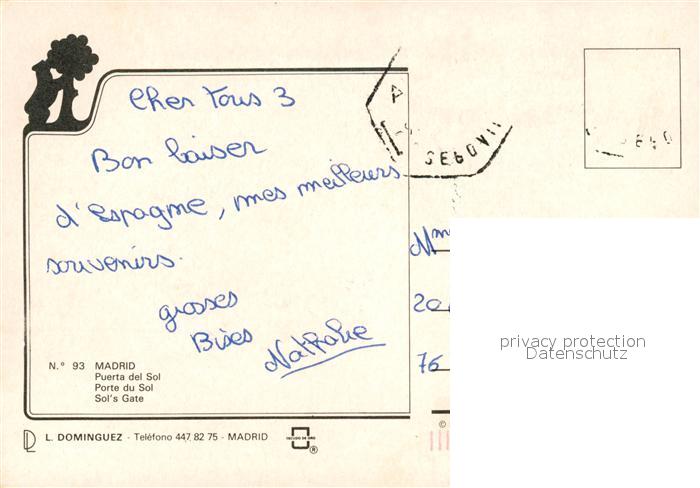 Cher Tous 3
Bon baiser
d'Espagne, mes meilleurs
souvenirs.
grosses
Bises
Nathalie
N.° 93 MADRID
Puerta del Sol
Porte du Sol
Sol's Gate
L. DOMINGUEZ - Teléfono 447 82 75 - MADRID
®
A
SEGOVI
Mm
20
76
privacy protection
Datenschutz
©